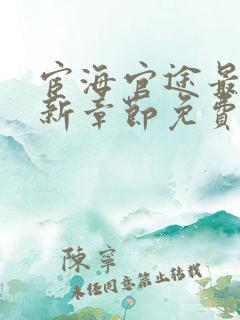 宦海官途最
新章節免費
陳寧
未经同意禁止转载